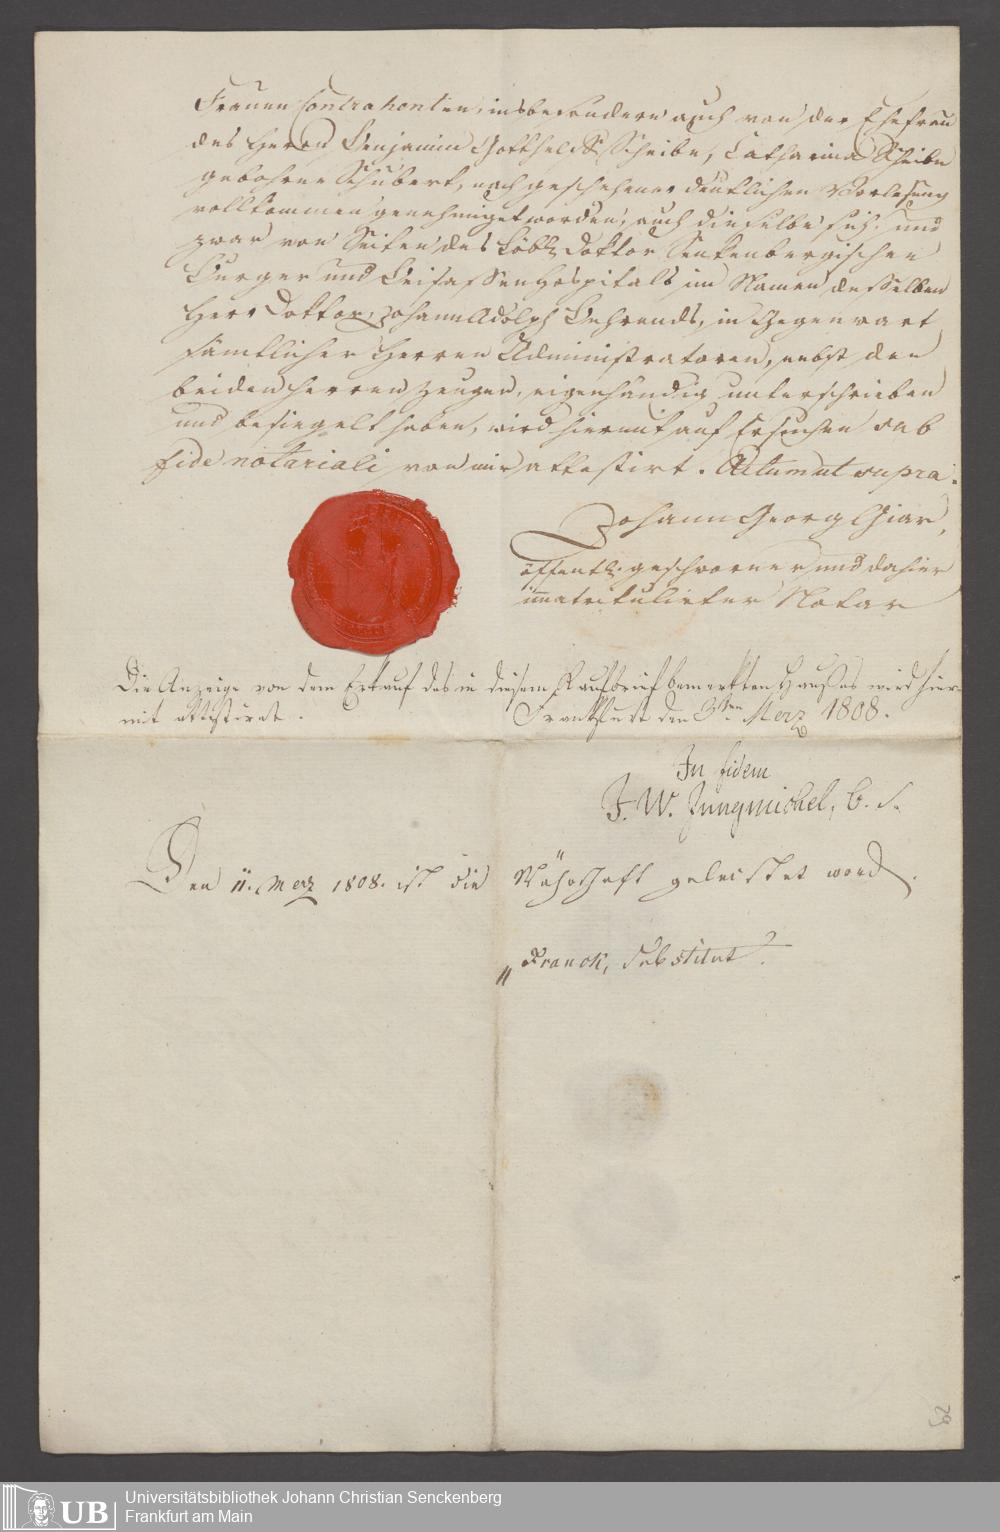 Frauen Contrahenten, insbesondere auch von der Ehefrau
des Herrn Benjamin Gotthelf Scheibe, Catharina Scheibe
gebohrne Schubert, nach geschehener deutlichen Vorlesung
vollkommen genehmiget worden, auch dieselbe sich und
zwar von Seiten des Löbl. Doktor Senkenbergischen
Burger und Beisassen Hospitals im Namen desselben
Herr Doktor Johann Adolph Behrends, in Gegenwart
sämtlicher Herren Administratoren, nebst den
beiden Herren Zeugen, eigenhändig unterschrieben
und besiegelt haben, wird hiermit auf Ersuchen sub
fide notariali von mir attestirt. Actum ut supra.
Johann Georg Giar,
öffentl. geschworner und dahier
immatrikulirter Notar
Die Anzeige von dem Erkauf des in diesem Kaufbrief bemerkten Haußes wird hier-
mit attestiret. Frankfurt den 3ten Merz 1808.
In fidem
J. W. Jungmichel,
Den 11. Merz 1808. ist die Währschaft geleistet word.
Franck, Substitut.
29
UB
Universitätsbibliothek Johann Christian Senckenberg
Frankfurt am Main